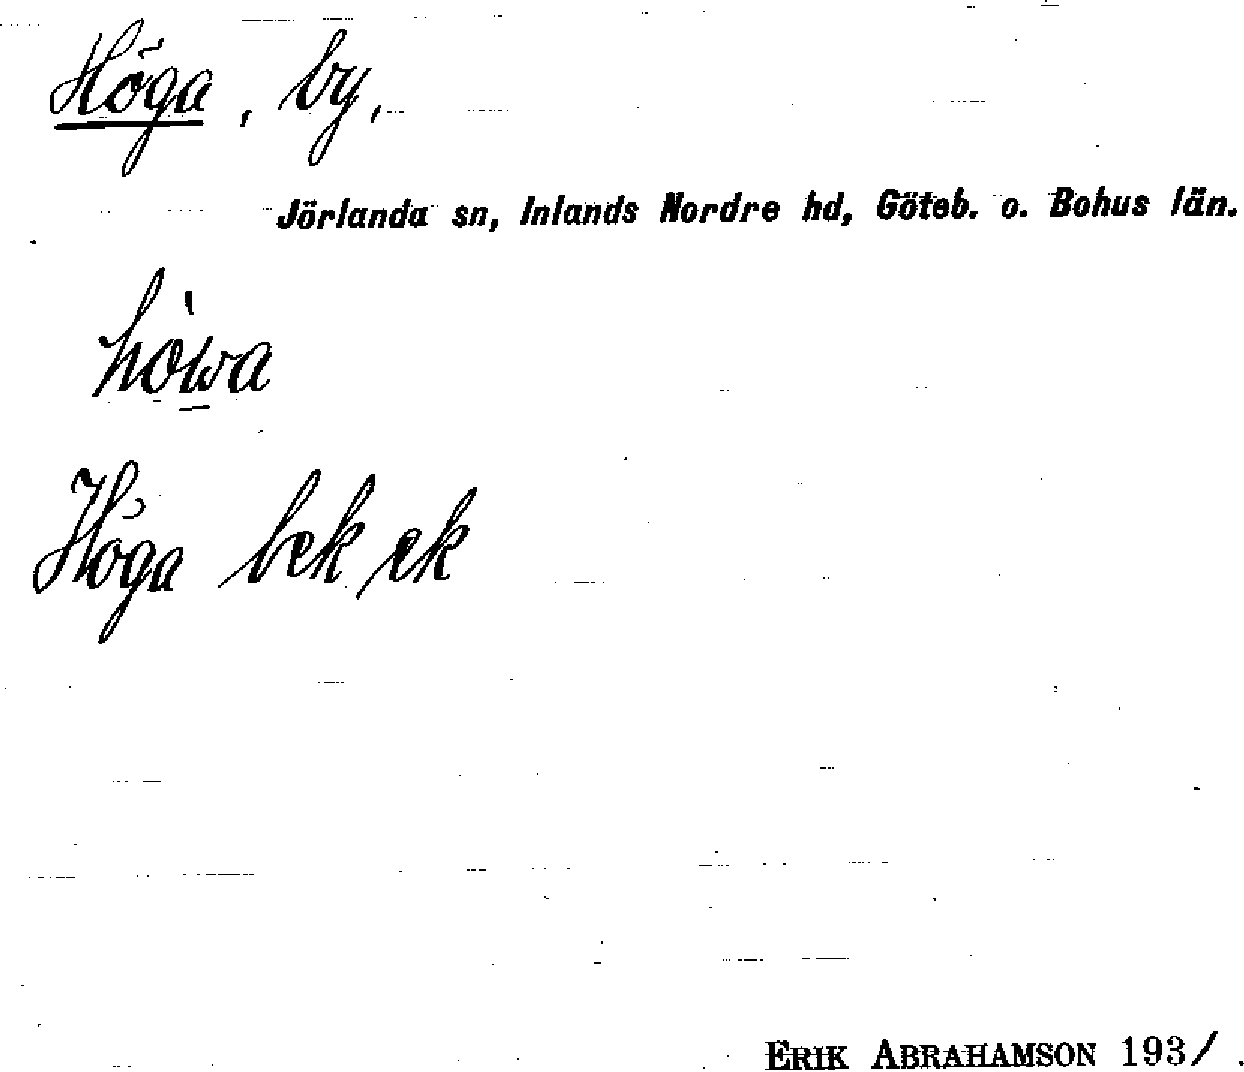 Höga, by,
Jörlanda sn, Inlands Nordre hd, Göteb. o. Bohus län.
Höga bek ek
ERIK ABRAHAMSON 1931.